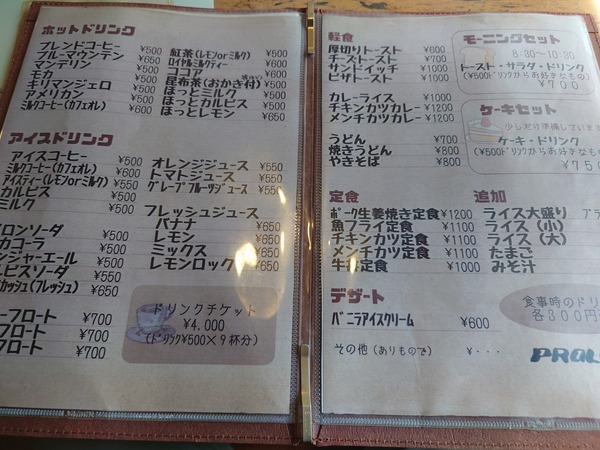 ホットドリンク
ブレンドコーヒー ¥500
ブルーマウンテン ¥650
マンデリン ¥500
モカ ¥500
キリマンジェロ ¥500
アメリカン ¥500
ミルクコーヒー(カフェオレ) ¥600
紅茶(レモンorミルク) ¥500
ロイヤルミルクティー ¥600
ココア ¥600
昆布茶(おかき付)
ほっとミルク
ほっとカルピス
ほっとレモン ¥650
アイスドリンク
アイスコーヒー ¥500
ミルクコーヒー(カフェオレ) ¥600
アイスティー(レモンorミルク) ¥550
カルピス ¥500
ミルク ¥500
ロンソーダ
カコーラ
ンジャーエール
ピスソーダ ¥550
カッシュ(フレッシュ) ¥650
ーフロート ¥700
フロート ¥700
フロート ¥700
オレンジジュース ¥550
トマトジュース ¥550
グレープフルーツジュース ¥550
フレッシュジュース
バナナ ¥650
レモン ¥650
ミックス ¥650
レモンロック ¥650
ドリンクチケット
¥4,000
(ドリンク¥500×9杯分)
軽食
厚切りトースト ¥600
チーストースト ¥700
サンドイッチ ¥1000
ピザトースト ¥1000
カレーライス ¥1000
チキンカツカレー ¥1200
メンチカツカレー ¥1200
うどん ¥700
焼きうどん ¥800
やきそば ¥800
モーニングセット
8:30~10:30
トースト・サラダ・ドリンク
(¥500ドリンクからお好きなもの)
¥700
ケーキセット
少しだけ準備しています
ケーキ・ドリンク
(¥500ドリンクからお好きなもの)
¥75
定食
ポーク生姜焼き定食 ¥1200
魚フライ定食 ¥1100
チキンカツ定食 ¥1100
メンチカツ定食 ¥1100
牛丼定食 ¥1000
追加
ライス大盛り
ライス(小)
ライス(大)
たまご
みそ汁
デザート
バニラアイスクリーム ¥600
その他(ありもので) ¥・・・
食事時のドリ
各300円